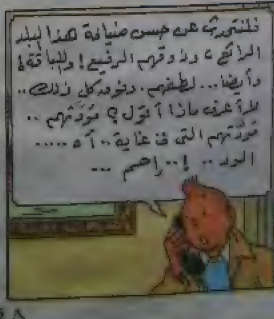 فلنتحدث عن حسن ضيافة هذا البلد
الرائع، وذوقهم الرفيع! واللباقة!
وأيضا... لطفهم، وفوق كل ذلك..
لا أعرف ماذا أقول؟ مودتهم..
مودتهم التى فى غاية.. آه.....
الود.. !.. إحم ...